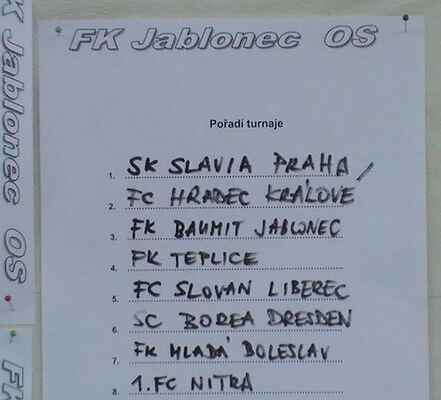 FK Jablonec OS
Pořadí turnaje
1. SK SLAVIA PRAHA
2. FC HRADEC KRÁLOVE
3. FK BAUMIT JABLONEC
4. FK TEPLICE
5. FC SLOVAN LIBEREC
6. SC BOREA DRESDEN
7. FK MLADÁ BOLESLAV
8. 1.FC NITRA
K Jablonec OS
FK